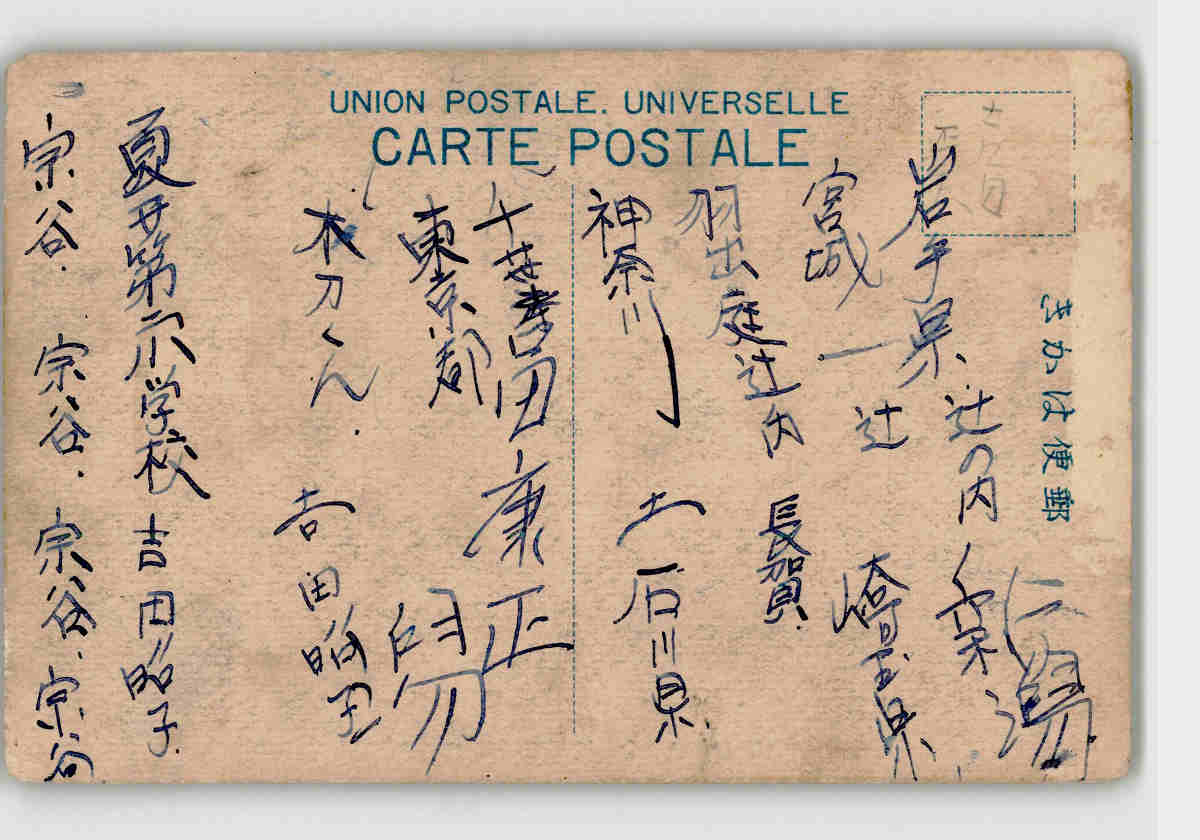 UNION POSTALE. UNIVERSELLE
CARTE POSTALE
きかは便郵
岩手県 辻の内
宮城 一辻
崎玉県
羽出庭辻内 長賀
神奈川
土 石川県
田 康正
東京都
木刀くん 吉田昭
夏井第 小学校 吉田昭子
宗谷. 宗谷. 宗谷. 宗谷